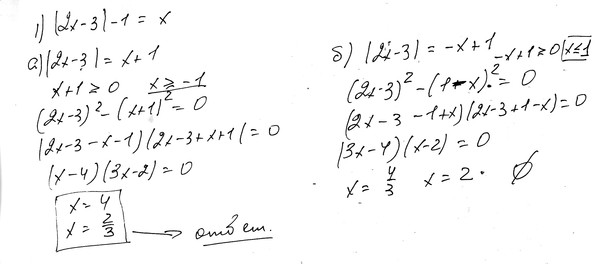 1) |2x-3|-1 = x
a) |2x-3| = x+1
x+1 ≥ 0 x ≥ -1
(2x-3)² - (x+1)² = 0
(2x-3-x-1)(2x-3+x+1) = 0
(x-4)(3x-2) = 0
x = 4
x = 2/3 → ответ.
б) |2x-3| = -x+1 -x+1 ≥ 0 x ≤ 1
(2x-3)² - (1-x)² = 0
(2x-3-1+x)(2x-3+1-x) = 0
(3x-4)(x-2) = 0
x = 4/3 x = 2. ∅